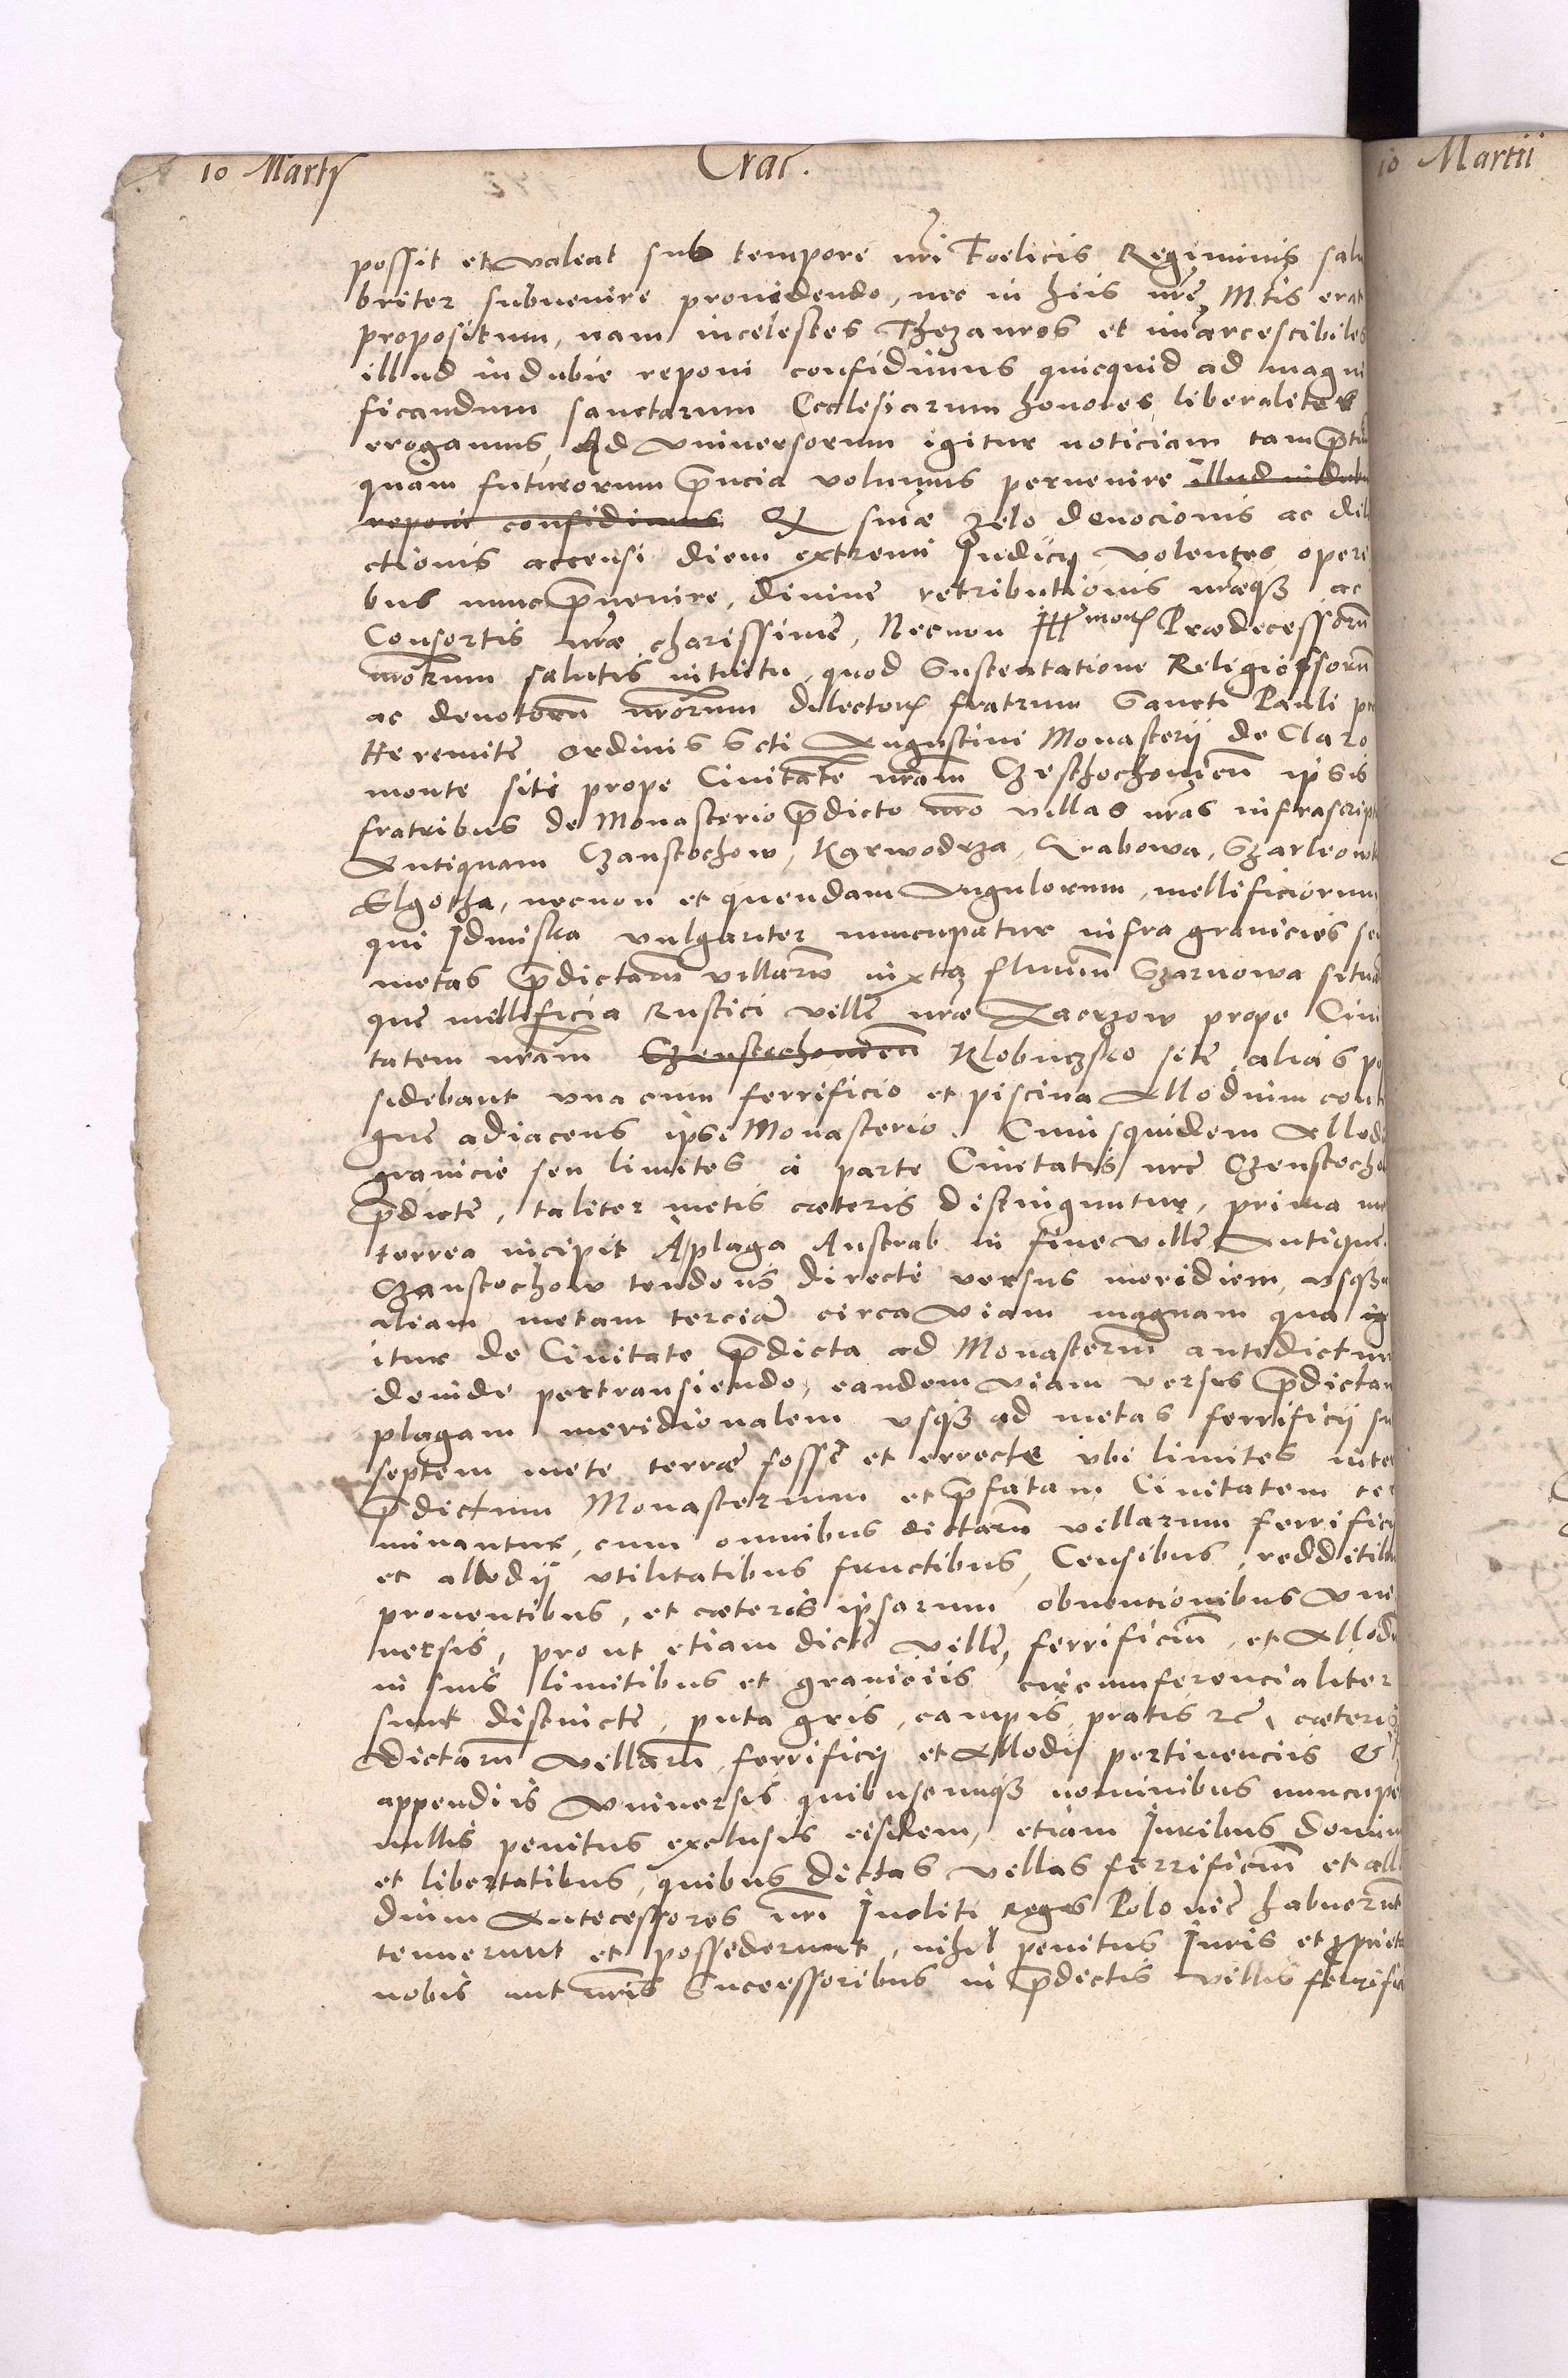 10 Martij Crac. 10 Martii
possit et valeat sub tempore nri Foelicis Regiminis salu
briter subuenire prouidendo, nec in hiis nre M.tis erat
propositum, nam in celestes Thezauros et inmarcescibiles
illud indubie reponi confidimus quicquid ad magni
ficandum sanctarum Ecclesiarum honores liberaliter
erogamus, Ad vniuersorum igitur noticiam tam pntium
quam futurorum pncia volumus peruenire illud indubie
reponi confidimus Q sinæ zelo deuocionis ac dile
ctionis accensi diem extremi Iudicij volentes operi
bus nunc pruenire, diuine retributionis nræqз ac
Consortis nræ charissime, Necnon Prædecessorum
nrorum salutis intuitu, quod Sustentatione Religiossorum
ac deuotorum nrorum dilectorum fratrum Sancti Pauli pri
Heremite ordinis Scti Augustini Monasterij de Claro
monte siti prope Ciuitatem nram Czesthochouien ipsis
fratribus de Monasterio pdicto nro villas nras infrascript
Antiquam Czanstochow, Karwodrza, Grabowa, Szarleowk
Elgotha, necnon et quendam Angulorum, mellificiorum
qui Idmiska vulgariter nuncupatur infra granicies seu
metas pdictarum villarum iuxta fluuium Szarnowa situa
que mellificia Rustici ville nræ Lacrzow prope Ciui
tatem nram Czenstochouien Klobuczsko site alias po
sidebant vna cum ferrificio et piscina Allodium conti
gue adiacens ipsi Monasterio. Cuius quidem Allodi
granicie seu limites à parte Ciuitatis nre Czenstocho
pdicte, taliter metis cæteris distinguntur, prima me
terrea incipit A plaga Austrab in fine ville Antique
Czanstochow tendens directe versus meridiem, vsqз a
aliam metam terciam circa viam magnam qua ig
itur de Ciuitate pdicta ad Monasterium antedictum
deinde pertransiendo, eandem viam versus pdictam
plagam meridionalem vsqз ad metas ferrificij su
septem mete terræ fosse et errecte vbi limites inter
pdictum Monasterium et pfatam Ciuitatem ter
minantur, cum omnibus dictarum villarum ferrificij
et allodij vtilitatibus fructibus, Censibus, redditibu
prouentibus, et cæteris ipsarum obuencionibus vni
uersis, pro ut etiam dicte ville, ferrificium, et Allodi
in suis limitibus et graniciis circumferencialiter
sunt distincte, puta gris, campis, pratis etc, cæteris
dictarum villarum ferrificij et Allodij pertinenciis &
appendiis vniuersis quibuscunqз nominibus nuncupe
nullis penitus exclusis eisdem, etiam Iuribus Domin
et libertatibus, quibus dictas villas ferrificium et all
dium Antecessores nri Incliti reges Polonie habuerunt
tenuerunt et possederunt, nihil penitus Iuris et pprieta
nobis aut nris Successoribus in pdictis villis ferrifici